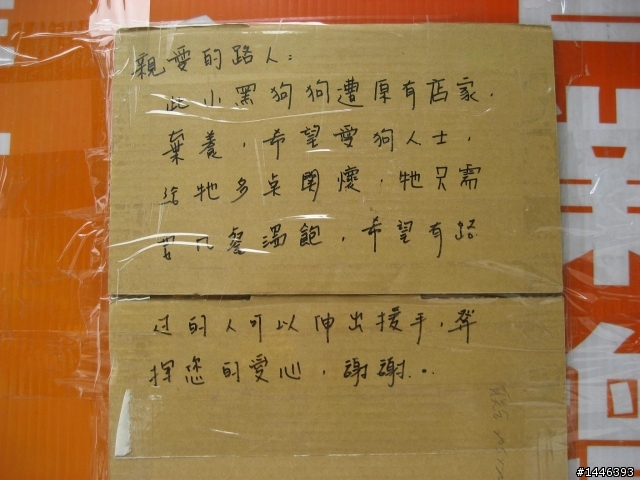 親愛的路人:
此小黑狗狗遭原有店家,
棄養,希望愛狗人士,
給牠多奌関懷,牠只需
几餐溫飽,希望有路
过的人可以伸出援手,發
揮您的愛心,謝謝..
#1446393